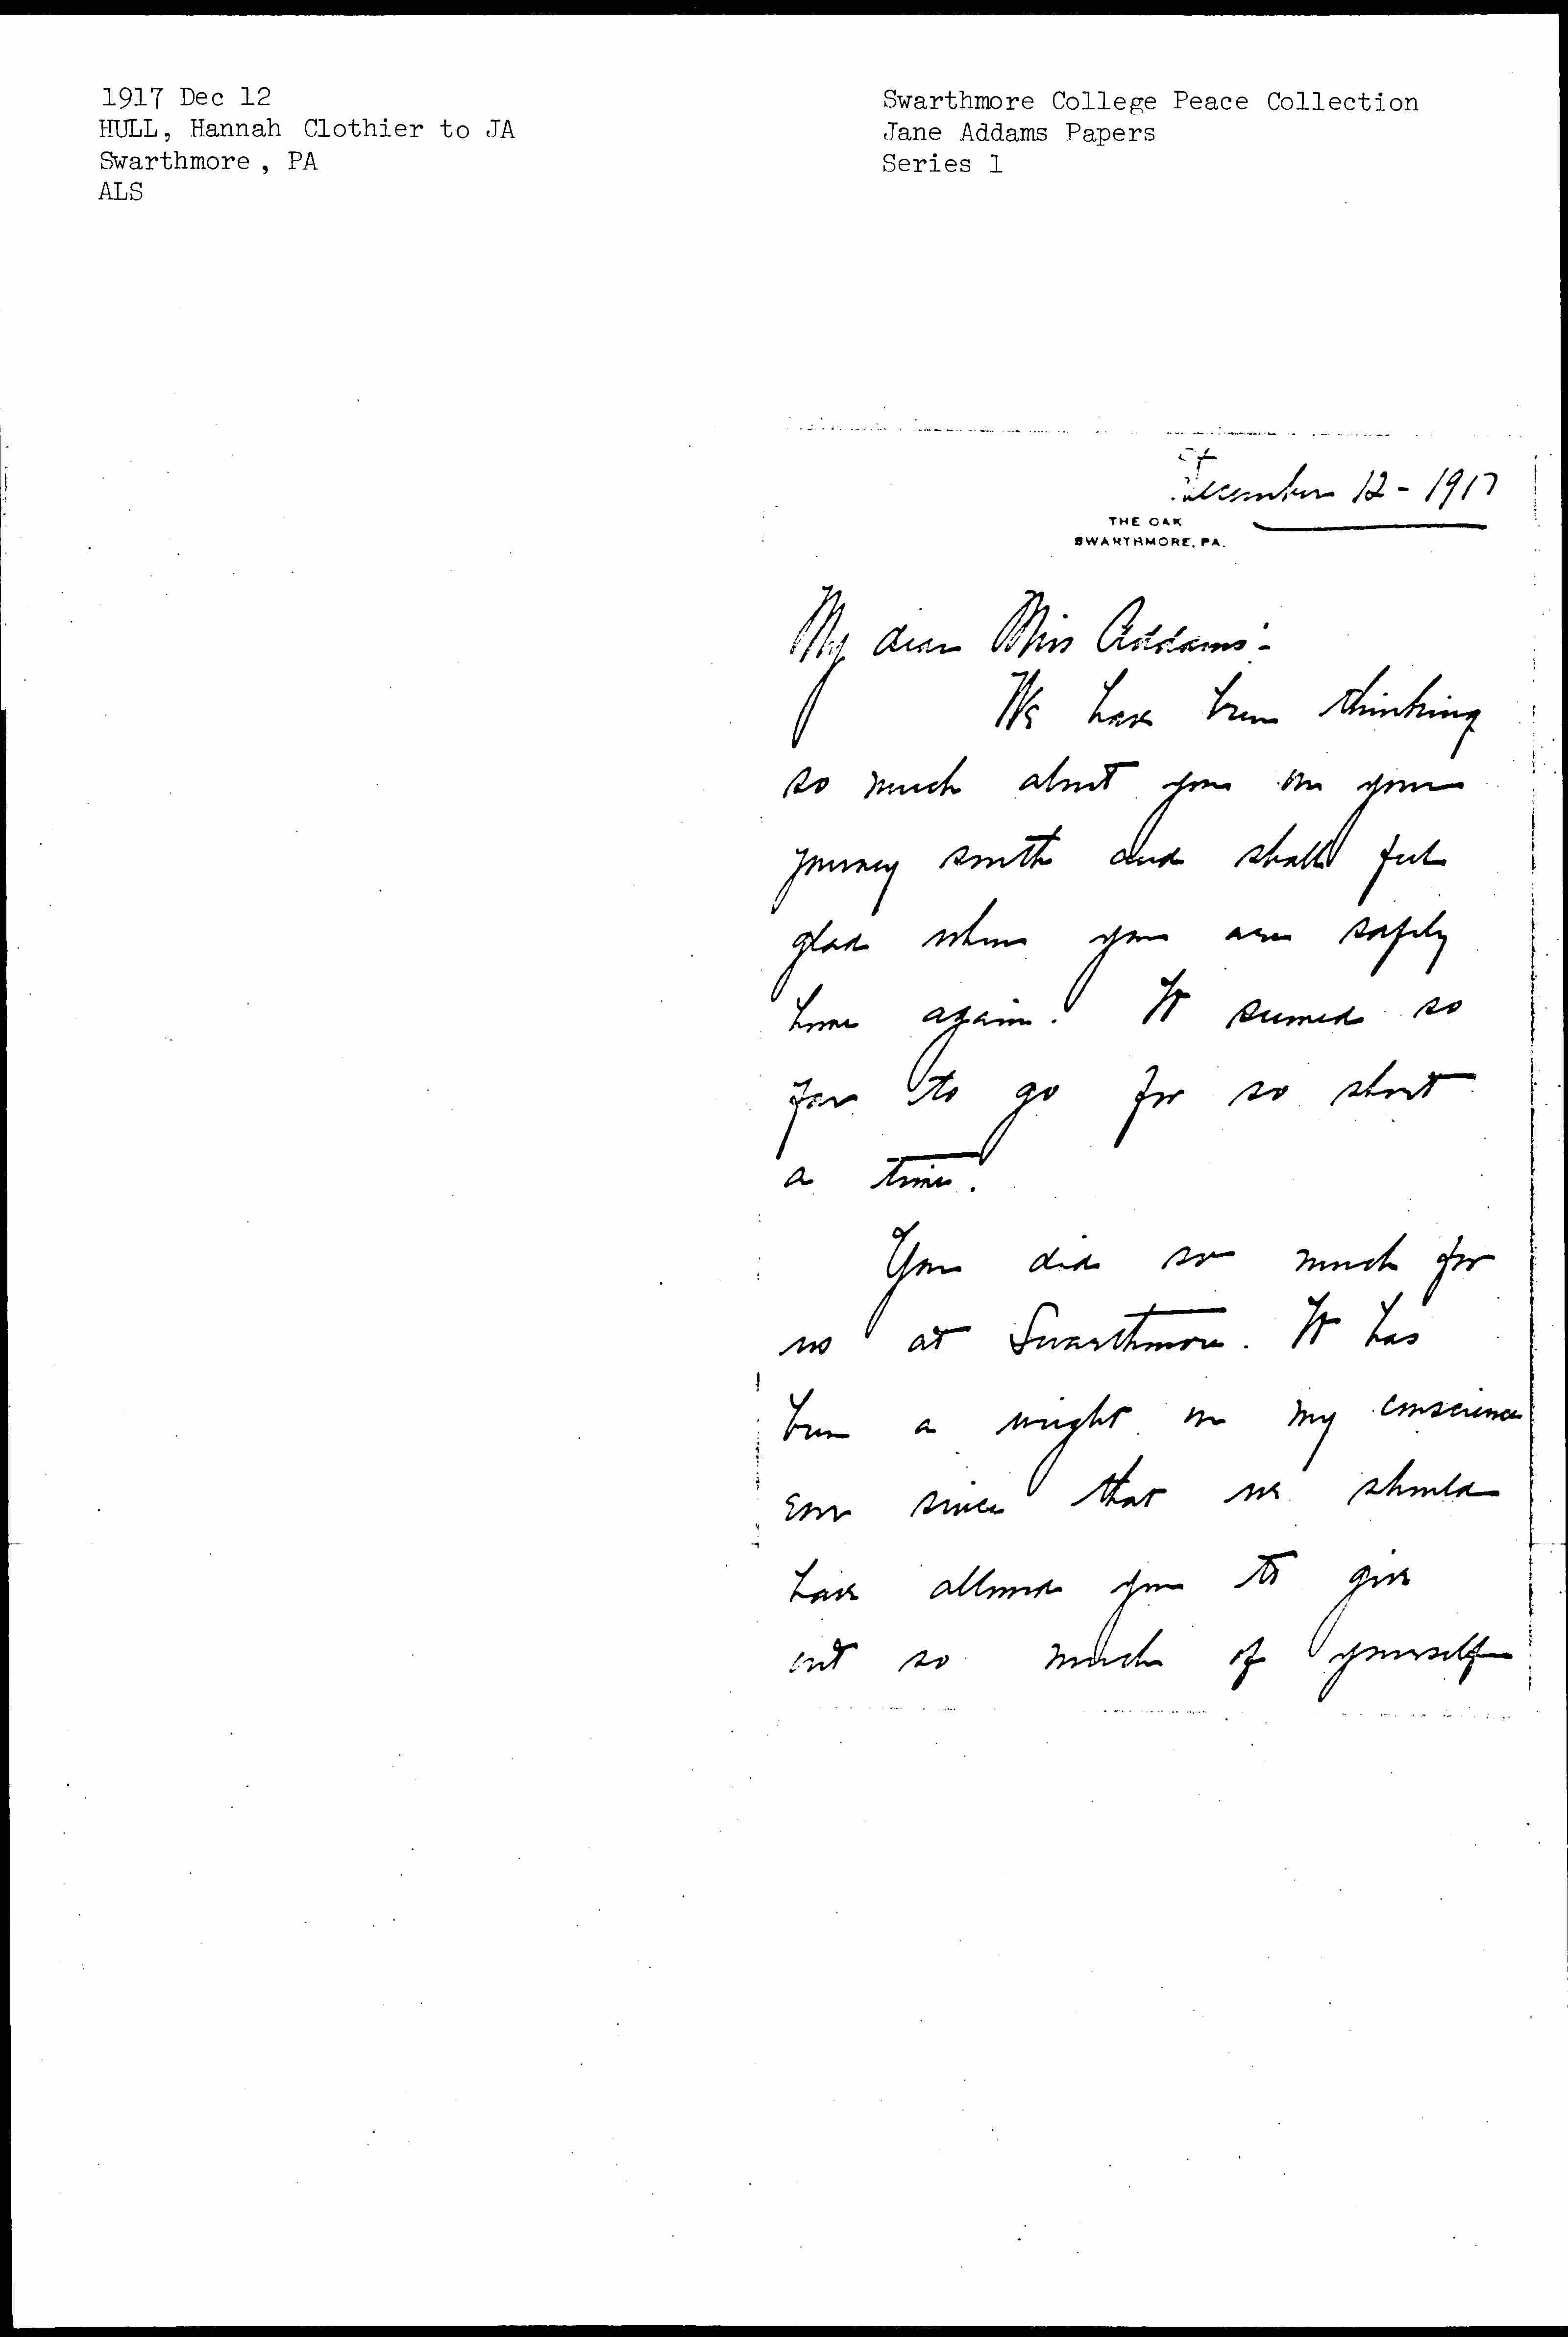 1917 Dec 12
HULL, Hannah Clothier to JA
Swarthmore, PA
ALS
Swarthmore College Peace Collection
Jane Addams Papers
Series 1
December 12 - 1917
THE OAK
SWARTHMORE, PA.
My dear Miss Addams:-
We have been thinking
so much about you on your
journey south and shall feel
glad when you are safely
home again. It seemed so
far to go for so short
a time.
You did so much for
us at Swarthmore. It has
been a weight on my conscience
ever since that we should
have allowed you to give
out so much of yourself